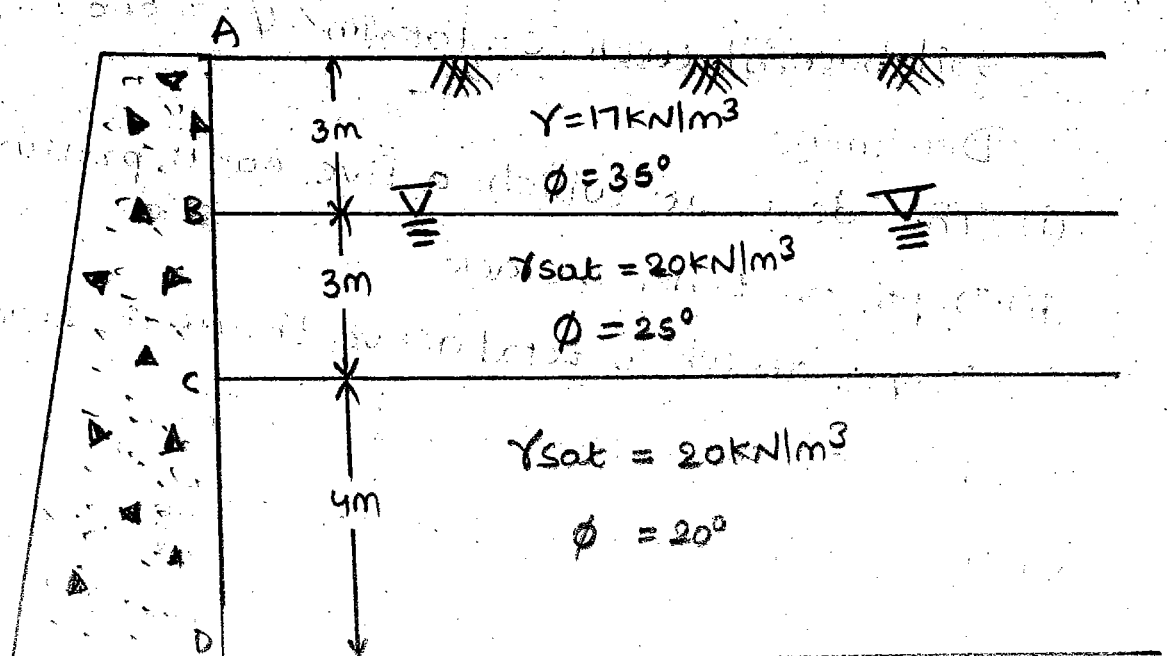 A
3m
γ=17KN/m3
ϕ = 35°
B
3m
γsat = 20KN/m3
ϕ = 25°
C
γsat = 20KN/m3
4m
ϕ = 20°
D